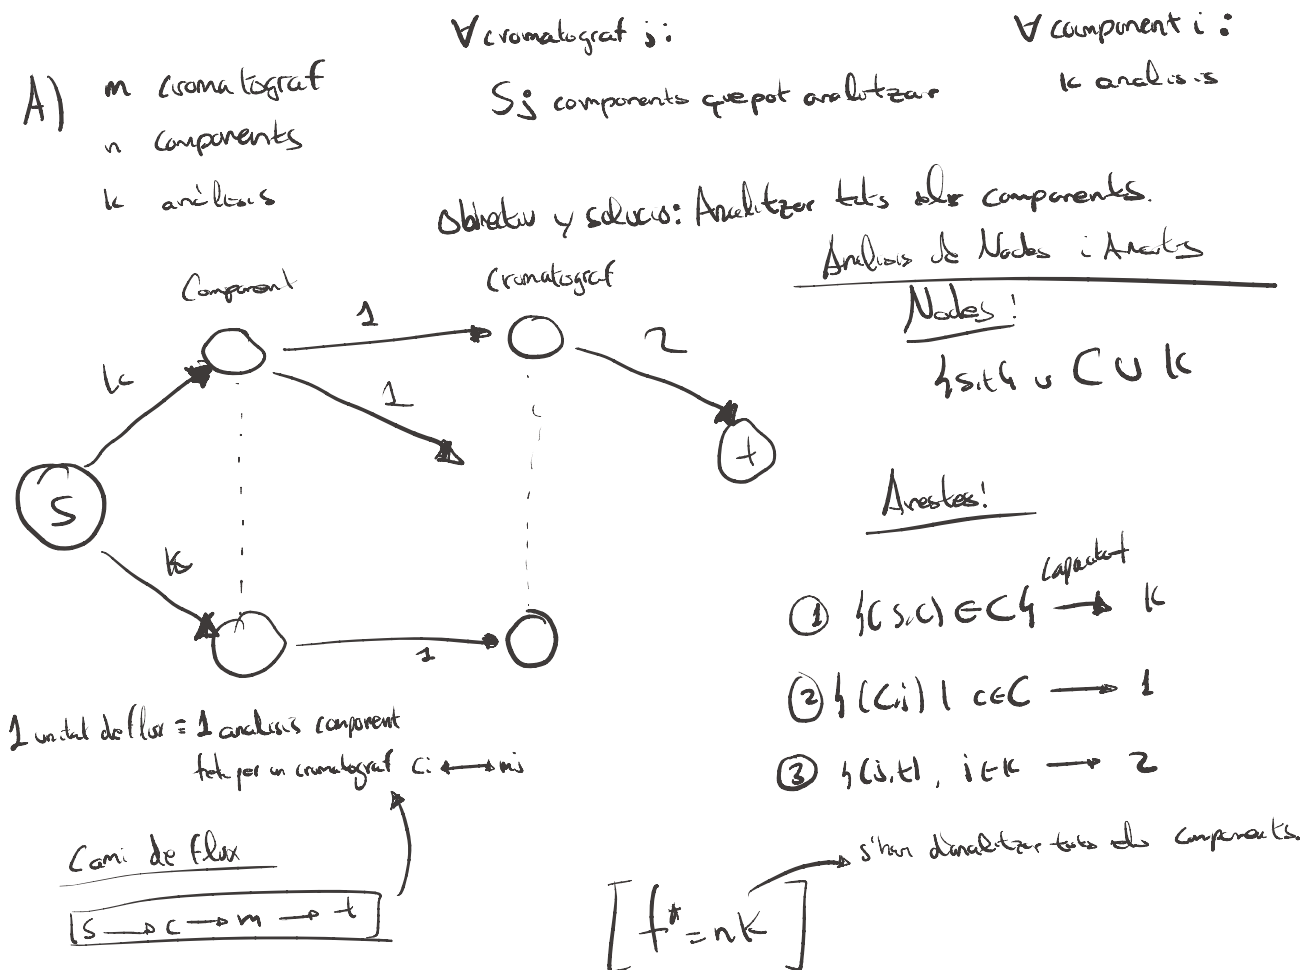 A)
m cromatograf
n components
k anàlisis
∀ cromatograf j:
Sj components que pot analitzar
∀ component i:
k analisis
Objectiu y solucio: Analitzar tots els components.
Analisis de Nodes i Arestes
Component
Cromatograf
Nodes!
{s,t} ∪ C ∪ K
k
1
1
2
S
t
k
1
Arestes!
capacitat
① {(s,c) ∈ C} → k
② {(c,j) | c∈C → 1
③ {(j,t), j∈k → 2
1 unitat de flux = 1 analisis component
fet per un cromatograf ci ↔ mj
Cami de flux
s → c → m → t
[f* = nk]
s'han d'analitzar tots els components.